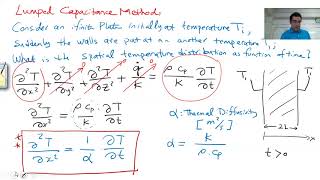 Lumped Capacitance Method
Consider an infinite Plate initially at temperature Ti,
Suddenly the walls are put at an another temperature T1,
What is the spatial temperature distribution as function of time?
∂²T/∂x² + ∂²T/∂y² + ∂²T/∂z² + q̇/k = ρ cp/k ∂T/∂t
∂²T/∂x² = ρ cp/k ∂T/∂t
α: Thermal Diffusivity
[m²/s]
∂²T/∂x² = 1/α ∂T/∂t
α = k/ρ.cp
T1
T1
2L
x
t>0